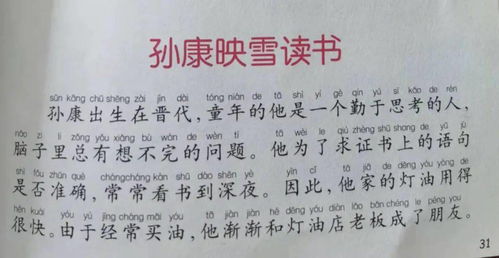 孙康映雪读书
sūn kāng chū shēng zài jìn dài tóng nián de tā shì yí gè qín yú sī kǎo de rén
孙康出生在晋代，童年的他是一个勤于思考的人，
nǎo zi lǐ zǒng yǒu xiǎng bù wán de wèn tí tā wèi le qiú zhèng shū shang de yǔ jù
脑子里总有想不完的问题。他为了求证书上的语句
shì fǒu zhǔn què chángcháng kàn shū dào shēn yè yīn cǐ tā jiā de dēng yóu yòng de
是否准确，常常看书到深夜。因此，他家的灯油用得
hěn kuài yóu yú jīng cháng mǎi yóu tā jiàn jiàn hé dēng yóu diàn lǎo bǎn chéng le péng you
很快。由于经常买油，他渐渐和灯油店老板成了朋友。
31